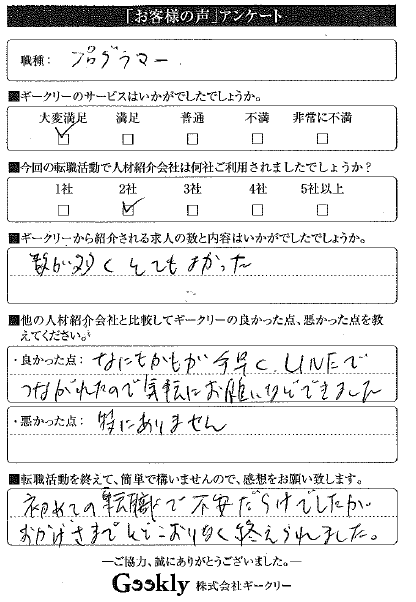 「お客様の声」アンケート
職種： プログラマー
■ギークリーのサービスはいかがでしたでしょうか。
大変満足 満足 普通 不満 非常に不満
■今回の転職活動で人材紹介会社は何社ご利用されましたでしょうか？
1社 2社 3社 4社 5社以上
■ギークリーから紹介される求人の数と内容はいかがでしたでしょうか。
数が多くとてもよかった
■他の人材紹介会社と比較してギークリーの良かった点、悪かった点を教
えてください。
・良かった点： なにもかもが手早く、LINEで
つながれたので気軽にお願いなどできました
・悪かった点： 特にありません
■転職活動を終えて、簡単で構いませんので、感想をお願い致します。
初めての転職で不安だらけでしたが
おかげさまでとどこおりなく終えられました。
―ご協力、誠にありがとうございました。―
Geekly 株式会社ギークリー